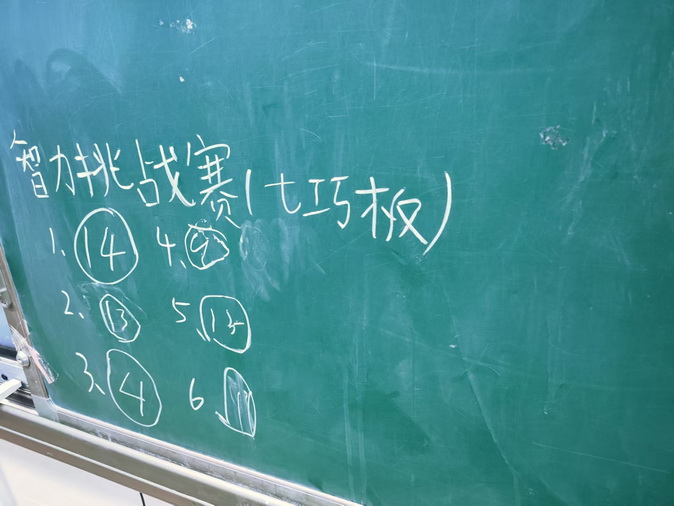 智力挑战赛(七巧板)
1. 14 4.
2. 13 5. 13
3. 4 6.